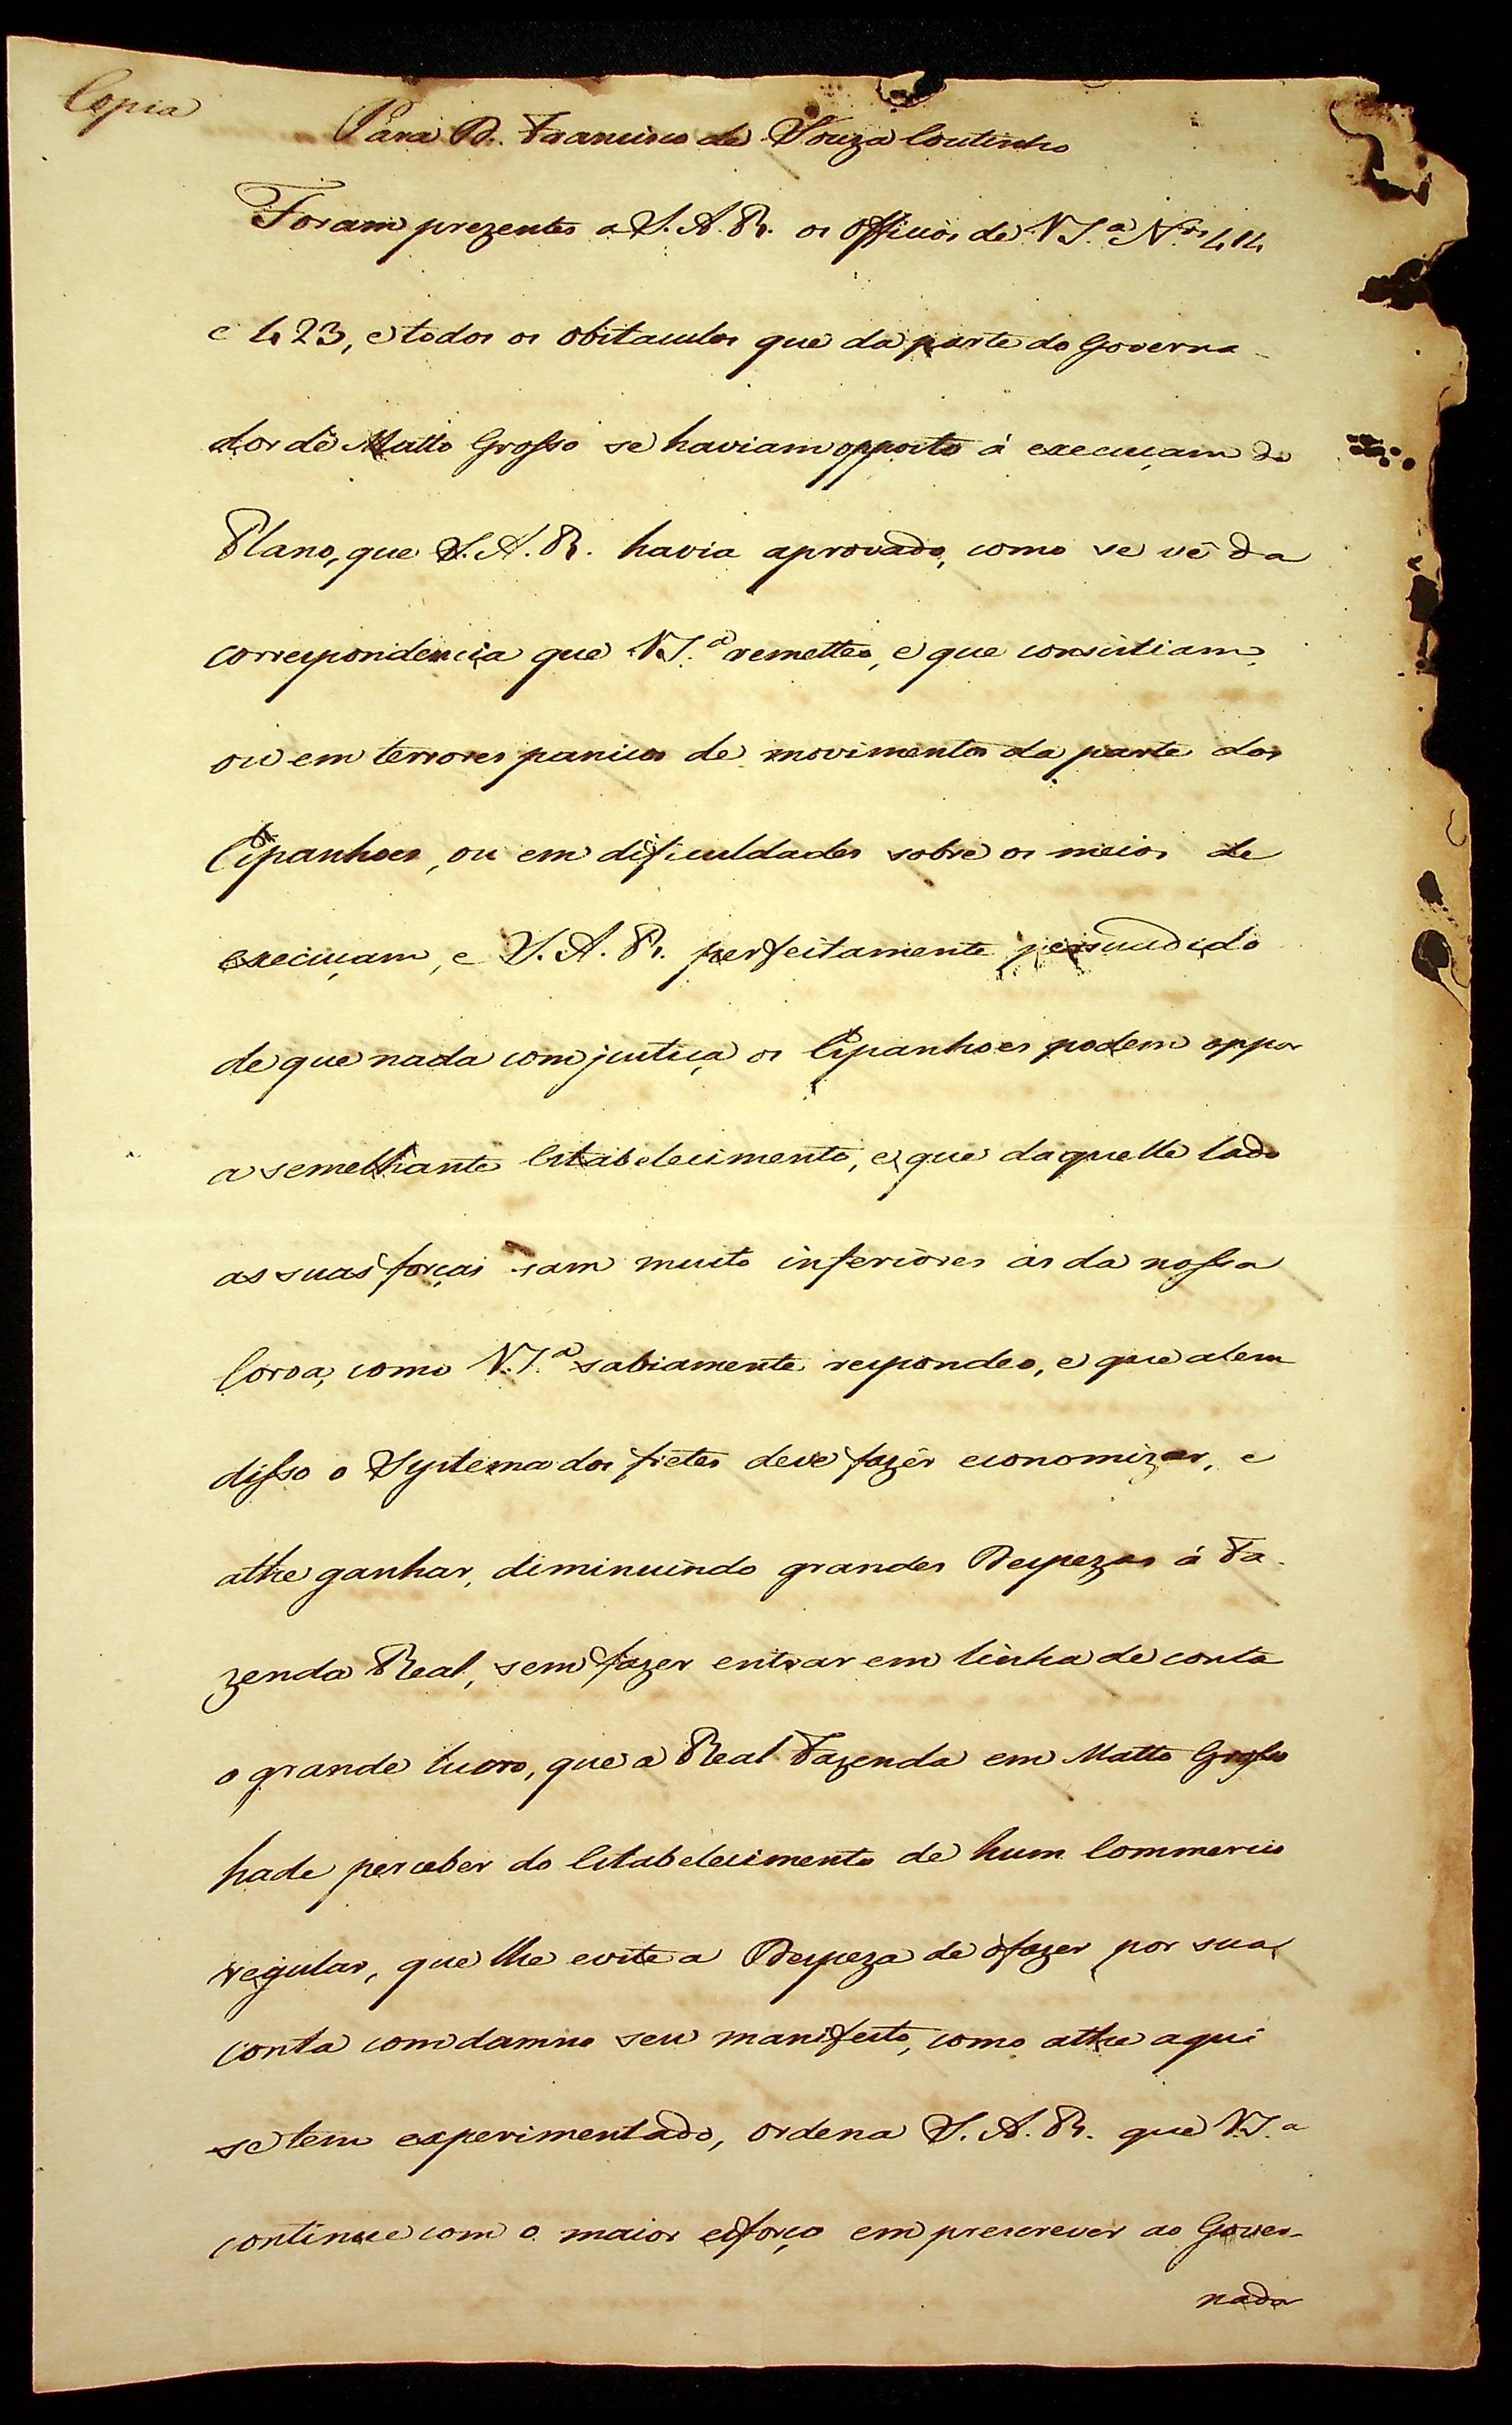 Copia
Para D. Francisco de Souza Coutinho
Foram prezentes a S. A. R. os Officios de V S.ª N.os 414
e 423, e todos os obstaculos que da parte do Governa-
dor de Matto Grosso se haviam opposto á execuçam do
Plano, que S. A. R. havia aprovado, como se vê da
correspondencia que V S.ª remetteo, e que consistiam,
ou em terrores panicos de movimentos da parte dos
Espanhoes, ou em dificuldades sobre os meios de
execuçam, e S. A. R. perfeitamente persuadido
de que nada com justiça os Espanhoes podem oppor
a semelhante Estabelecimento, e que daquelle lado
as suas forças sam muito inferiores ás da nossa
Coroa, como V. S.ª sabiamente respondeo, e que alem
disso o Systema dos fretes deve fazer economizar, e
athe ganhar, diminuindo grandes Despezas á Fa-
zenda Real, sem fazer entrar em linha de conta
o grande lucro, que a Real Fazenda em Matto Grosso
hade perceber do Estabelecimento de hum Commercio
regular, que lhe evite a Despeza de o fazer por sua
conta com damno seu manifesto, como athe aqui
se tem experimentado, ordena S. A. R. que V. S.ª
continue com o maior esforço em prescrever ao Gover-
nador